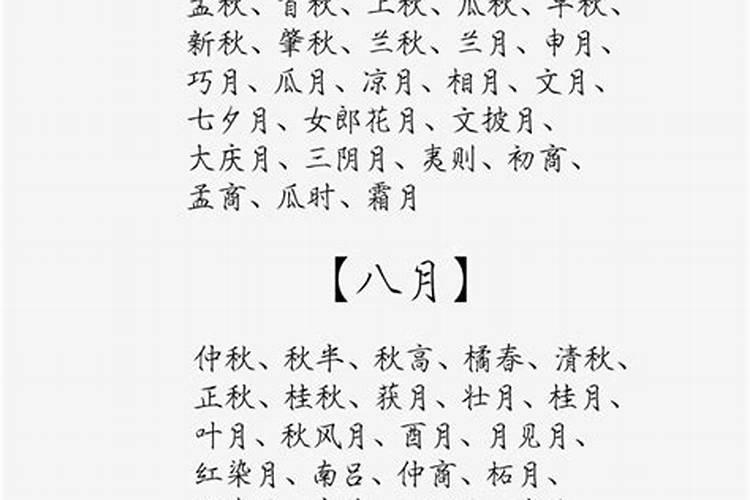 孟秋、首秋、上秋、瓜秋、早秋、
新秋、肇秋、兰秋、兰月、申月、
巧月、瓜月、凉月、相月、文月、
七夕月、女郎花月、文披月、
大庆月、三阴月、夷则、初商、
孟商、瓜时、霜月
【八月】
仲秋、秋半、秋高、橘春、清秋、
正秋、桂秋、获月、壮月、桂月、
叶月、秋风月、酉月、月见月、
红染月、南吕、仲商、柘月、